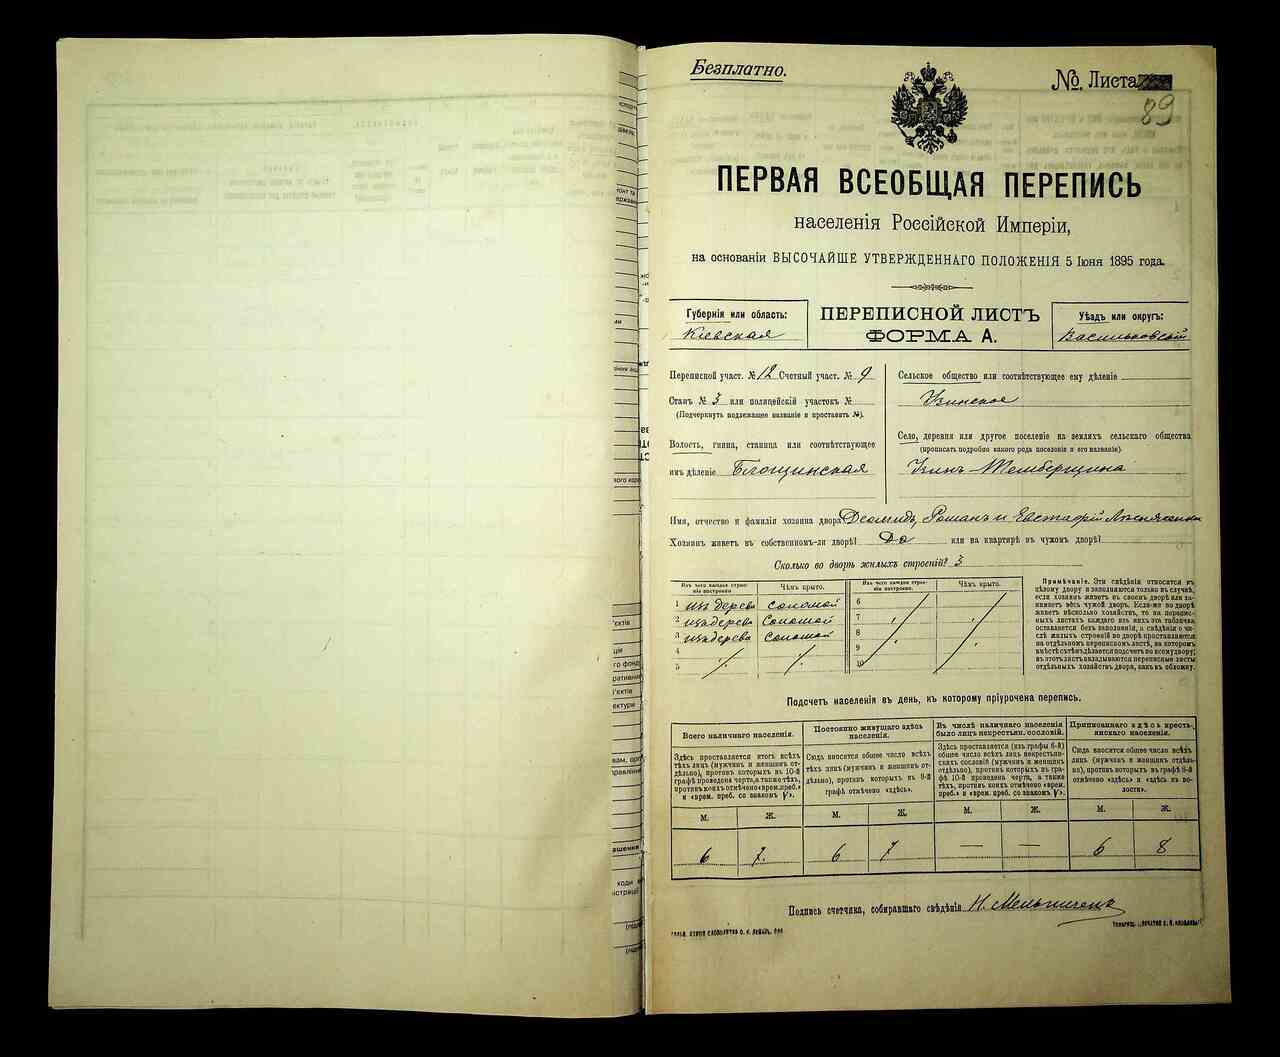 Безплатно.
№ Листа
89
ПЕРВАЯ ВСЕОБЩАЯ ПЕРЕПИСЬ
населенія Россійской Имперіи,
на основаніи ВЫСОЧАЙШЕ УТВЕРЖДЕННАГО ПОЛОЖЕНІЯ 5 Іюня 1895 года.
Губернія или область:
Кіевская
ПЕРЕПИСНОЙ ЛИСТЪ
ФОРМА А.
Уѣздъ или округъ:
Васильковскій
Переписной участ. № 12 Счетный участ. № 9
Станъ № 3 или полицейскій участокъ №
(Подчеркнуть подлежащее названіе и проставить №).
Волость, гмина, станица или соотвѣтствующее
имъ дѣленіе Блощинская
Сельское общество или соотвѣтствующее ему дѣленіе
Узинское
Село, деревня или другое поселеніе на земляхъ сельскаго общества
(прописать подробно какого рода поселеніе и его названіе).
Узинъ-Жемберщина
Имя, отчество и фамилія хозяина двора Деомидъ, Романъ и Евстафій
Хозяинъ живетъ въ собственномъ-ли дворѣ? Да или на квартирѣ въ чужомъ дворѣ?
Сколько во дворѣ жилыхъ строеній? 3
Изъ чего каждое строеніе построено
Чѣмъ крыто.
Изъ чего каждое строеніе построено.
Чѣмъ крыто.
1 изъ дерева соломой
2 изъ дерева соломой
3 изъ дерева соломой
4
5
6
7
8
9
10
Примѣчаніе. Эти свѣдѣнія относятся къ
цѣлому двору и заполняются только въ случаѣ,
если хозяинъ живетъ въ своемъ дворѣ или занимаетъ
весь чужой дворъ. Если-же во дворѣ
живетъ нѣсколько хозяйствъ, то на переписныхъ
листахъ каждаго изъ нихъ эта табличка
оставляется безъ заполненія, а свѣдѣнія о числѣ
жилыхъ строеній во дворѣ проставляются
на отдѣльномъ переписномъ листѣ, на которомъ
вмѣстѣ съ тѣмъ дѣлается подсчетъ по всему двору;
въ этотъ листъ вкладываются переписные листы
отдѣльныхъ хозяйствъ двора, какъ въ обложку.
Подсчетъ населенія въ день, къ которому пріурочена перепись.
Всего наличнаго населенія.
Здѣсь проставляется итогъ всѣхъ
тѣхъ лицъ (мужчинъ и женщинъ отдѣльно),
противъ которыхъ въ 10-й
графѣ проведена черта, а также тѣхъ,
противъ коихъ отмѣчено «врем. преб.»
и «врем. преб. со знакомъ V».
Постоянно живущаго здѣсь
населенія.
Сюда вносится общее число всѣхъ
тѣхъ лицъ (мужчинъ и женщинъ отдѣльно),
противъ которыхъ въ 9-й
графѣ отмѣчено «здѣсь».
Въ числѣ наличнаго населенія
было лицъ некрестьян. сословій.
Здѣсь проставляется (изъ графы 6-й)
общее число всѣхъ лицъ некрестьянскихъ
сословій (мужчинъ и женщинъ
отдѣльно), противъ которыхъ въ
графѣ 10-й проведена черта, а также
тѣхъ, противъ коихъ отмѣчено «врем.
преб.» и «врем. преб. со знакомъ V».
Приписаннаго здѣсь крестьянскаго
населенія.
Сюда вносится общее число всѣхъ
лицъ (мужчинъ и женщинъ отдѣльно),
противъ которыхъ въ графѣ 8-й
отмѣчено «здѣсь» и «здѣсь въ волости».
М. Ж. М. Ж. М. Ж. М. Ж.
6 7 6 7 — — 6 8
Подпись счетчика, собиравшаго свѣдѣнія Н. Мельниченко